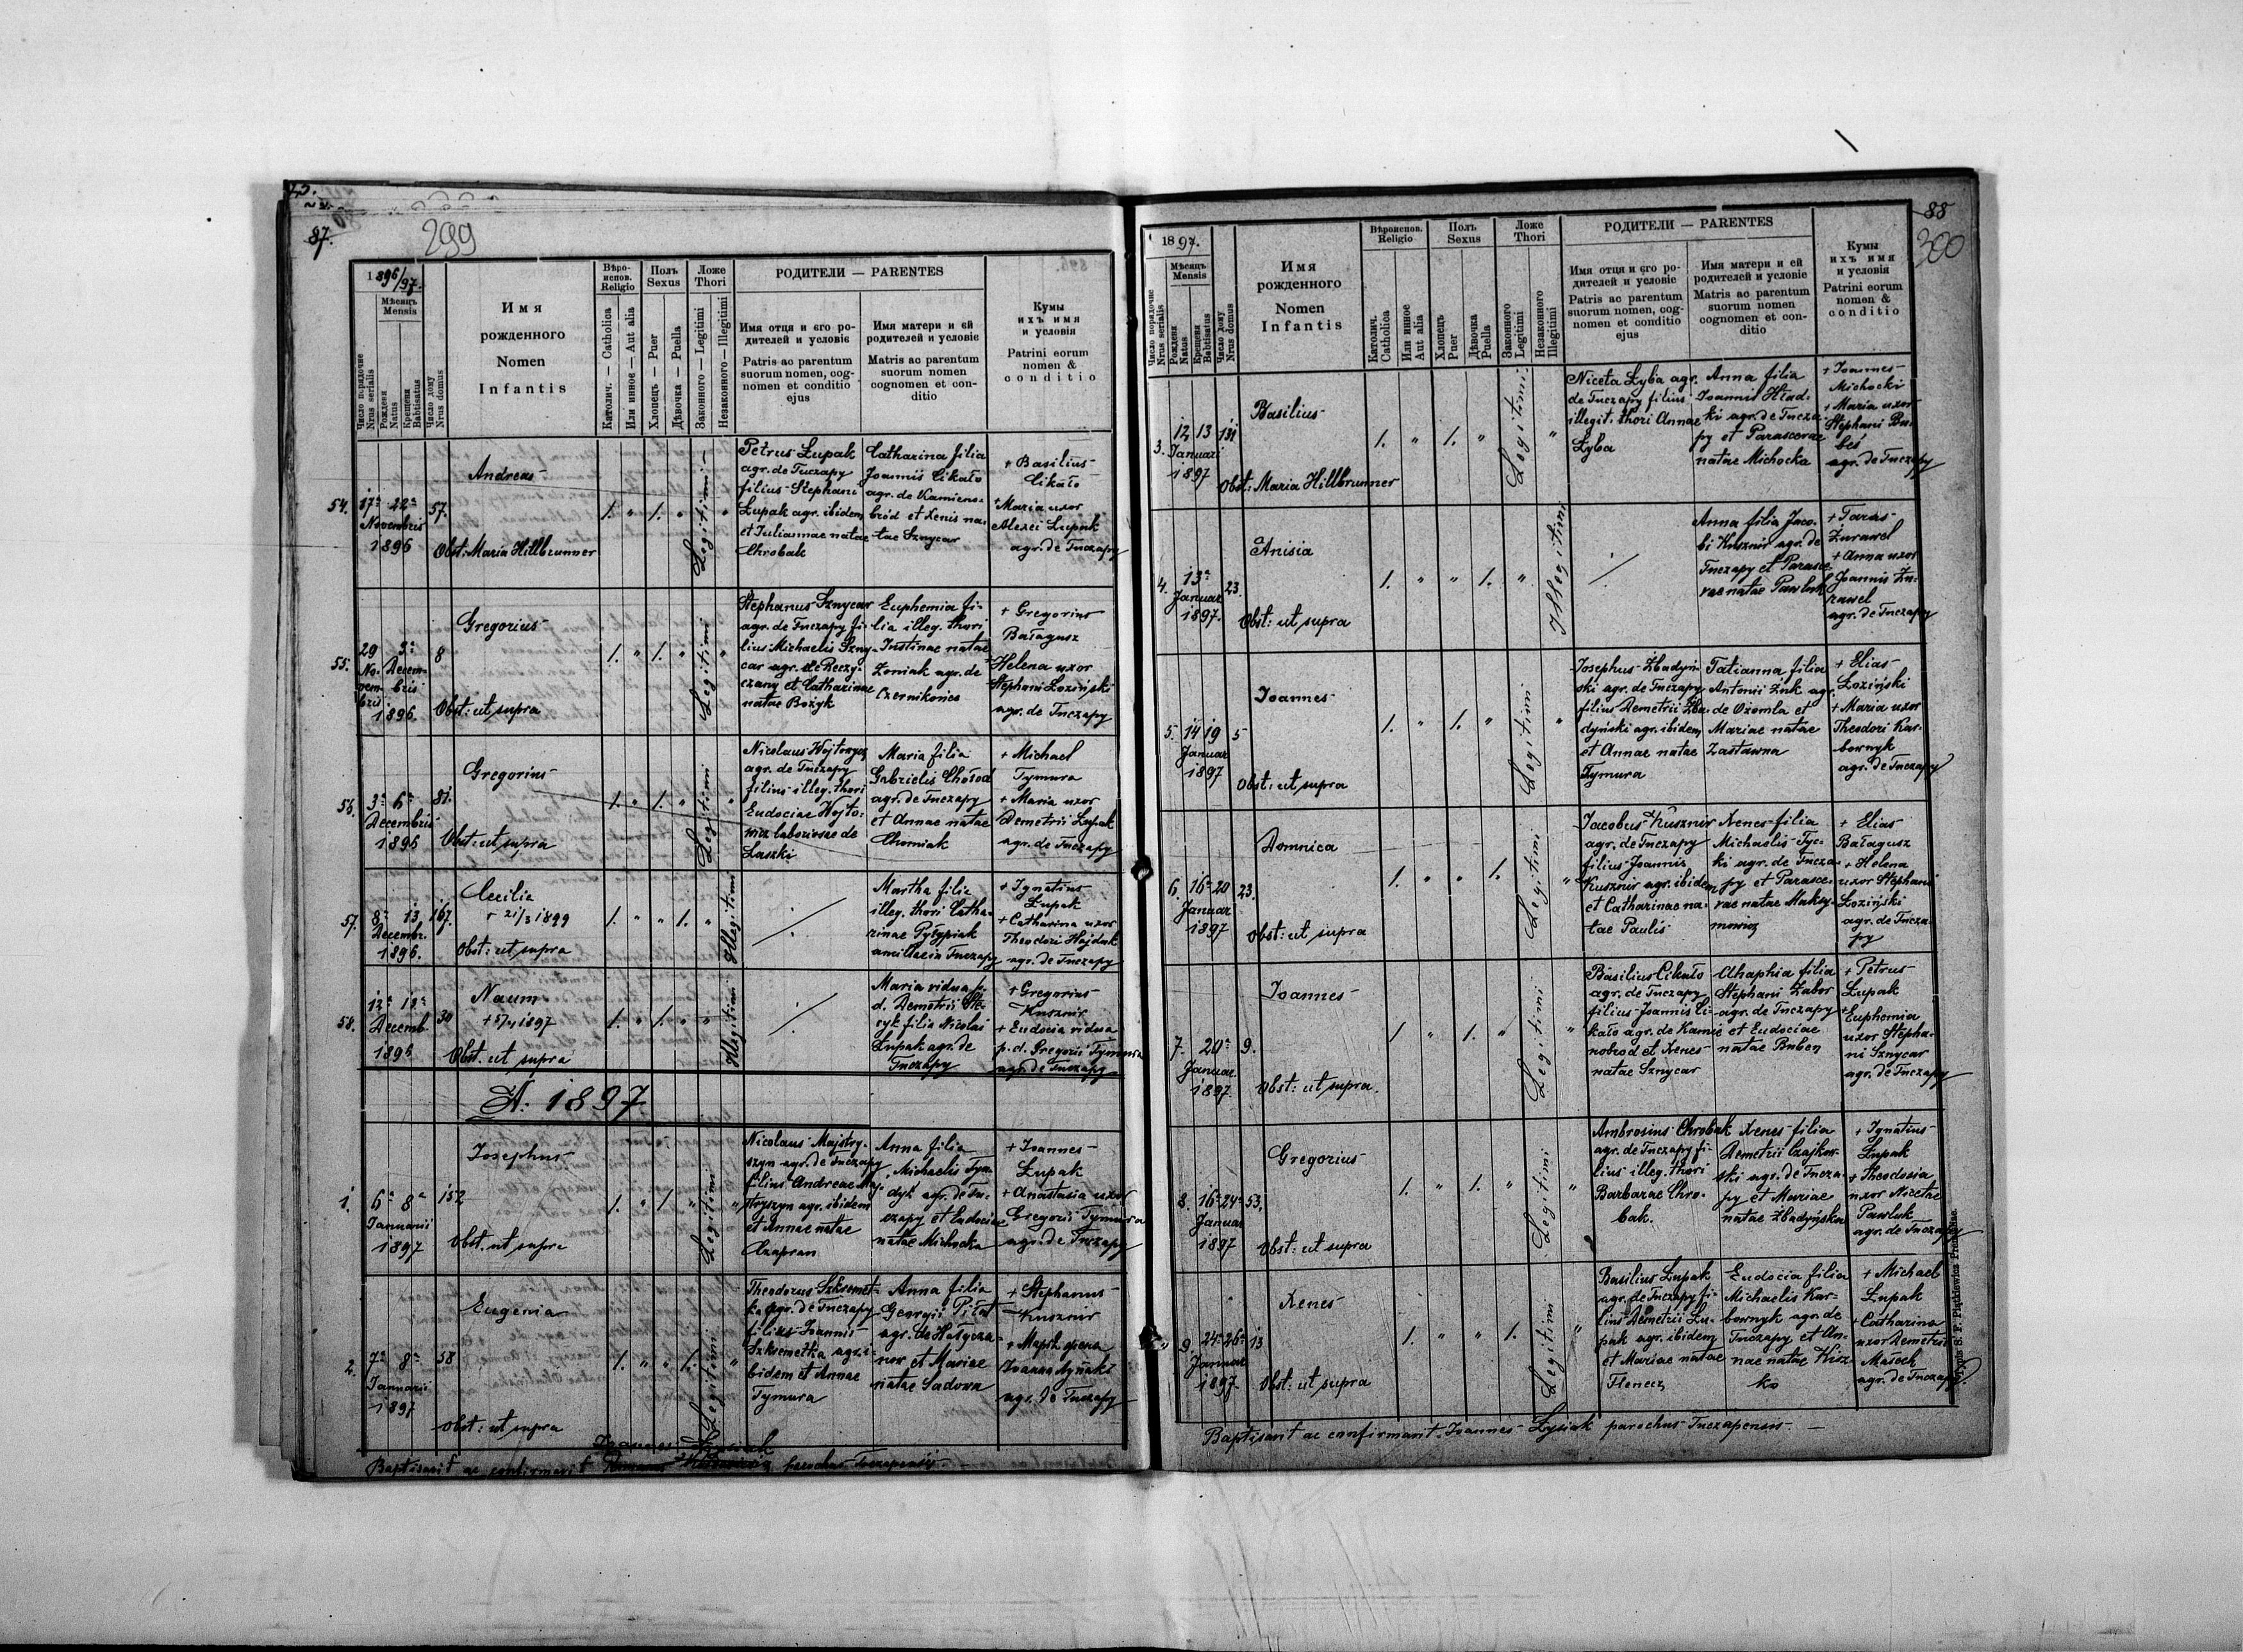 87.
299
1896/97.
Мѣсяцъ
Mensis
Число порядочне
Nrus serialis
Рожденя
Natus
Крещеня
Babtisatus
Число дому
Nrus domus
Имя
рожденного
Nomen
Infantis
Вѣро-
испов.
Religio
Католич. — Catholica
Или инноє — Aut alia
Полъ
Sexus
Хлопецъ — Puer
Дѣвочка — Puella
Ложе
Thori
Законного — Legitimi
Незаконного — Illegitimi
РОДИТЕЛИ — PARENTES
Имя отця и єго ро-
дителей и условіє
Patris ac parentum
suorum nomen, cog-
nomen et conditio
ejus
Имя матери и єй
родителей и условіє
Matris ac parentum
suorum nomen
cognomen et con-
ditio
Кумы
ихъ имя
и условія
Patrini eorum
nomen &
conditio
54.
17a 22a
Novembris
1896
57.
Andreas
Obst: Maria Hillbrunner
1. " 1. "
Legitimi
"
Petrus Łupak
agr. de Tuczapy
filius Stephani
Łupak agr. ibidem
et Iuliannae natae
Chrobak
Catharina filia
Joannis Cikało
agr. de Kamieno-
bród et Xenis na-
tae Sznycar
+ Basilius
Cikało
+ Maria uxor
Alexii Łupak
agr. de Tuczapy
55.
29 3a
No- Decem-
vem- bris
bris
1896.
8
Gregorius
Obst: ut supra
1. " 1. "
Legitimi
"
Stephanus Sznycar
agr. de Tuczapy fi-
lius Michaelis Szny-
car agr. de Reczy-
czany et Catharinae
natae Bożyk
Euphemia fi-
lia illeg. thori
Justinae natae
Zoniak agr. de
Czernikowice
+ Gregorius
Bałagusz
+ Helena uxor
Stephani Łoziński
agr. de Tuczapy
56.
3a 6a
Decembris
1896
81.
Gregorius
Obst: ut supra
1. " 1. "
Legitimi
"
Nicolaus Wojtowycz
agr. de Tuczapy
filius illeg. thori
Eudociae Wojto-
wicz laboriosae de
Laszki
Maria filia
Gabrielis Chołod
agr. de Tuczapy
et Annae natae
Chomiak
+ Michael
Tymura
+ Maria uxor
Demetrii Łupak
agr. de Tuczapy
57.
8a 13
Decembr.
1896.
167.
Cecilia
+ 21/3 1899
Obst: ut supra
1. " " 1. "
Illegitimi
Martha filia
illeg. thori Catha-
rinae Pyłypiak
ancillae in Tuczapy
+ Ignatius
Łupak
+ Catharina uxor
Theodori Hajduk
agr. de Tuczapy
58.
12a 13a
Decemb.
1896
30
Naum
1897
Obst. ut supra
1. " 1. " "
Illegitimi
Maria vidua p.
d. Demetrii
filia Nicolai
Łupak agr. de
Tuczapy
+ Gregorius
Kusznir
+ Eudocia vidua
p. d. Gregorii Tymura
agr. de Tuczapy
A. 1897.
1.
6a 8a
Januarii
1897
152
Josephus
Obst. ut supra
1. " 1. "
Legitimi
"
Nicolaus Majstry-
szyn agr. de Tuczapy
filius Andreae Maj-
stryszyn agr. ibidem
et Annae natae
Czapran
Anna filia
Michaelis Tym-
dyk agr. de Tu-
czapy et Eudociae
natae Michocka
+ Joannes
Łupak
+ Anastasia uxor
Gregorii Tymura
agr. de Tuczapy
2.
7a 8a
Januarii
1897
58
Eugenia
Obst: ut supra
1. " " 1.
Legitimi
"
Theodorus Szkremet-
ka agr. de Tuczapy
filius Joannis
Szkremetka agr. i-
bidem et Annae
Tymura
Anna filia
Georgii Piłat
agr. de
et Mariae
natae Sadowa
+ Stephanus
Kusznir
agr. de Tuczapy
Joannes Łysiak
Baptisavit ac confirmavit parochus Tuczapensis
88
300
1897.
Мѣсяцъ
Mensis
Число порядочне
Nrus serialis
Рожденя
Natus
Крещеня
Babtisatus
Число дому
Nrus domus
Имя
рожденного
Nomen
Infantis
Вѣроиспов.
Religio
Католич.
Catholica
Или инноє
Aut alia
Полъ
Sexus
Хлопецъ
Puer
Дѣвочка
Puella
Ложе
Thori
Законного
Legitimi
Незаконного
Illegitimi
РОДИТЕЛИ — PARENTES
Имя отця и єго ро-
дителей и условіє
Patris ac parentum
suorum nomen, cog-
nomen et conditio
ejus
Имя матери и ей
родителей и условіє
Matris ac parentum
suorum nomen
cognomen et con-
ditio
Кумы
ихъ имя
и условія
Patrini eorum
nomen &
conditio
3.
12 13
Januari
1897
131
Basilius
Obst: Maria Hillbrunner
1. " 1. "
Legitimi
"
Niceta Łyba agr.
de Tuczapy filius
illegit. thori Annae
Łyba
Anna filia
Joannis Hład-
ki agr. de Tucza-
py et Parascevae
natae Michocka
+ Joannes
Michocki
+ Maria uxor
Stephani Bu-
beś
agr. de Tuczapy
4.
13a
Januar
1897.
23.
Anisia
Obst: ut supra
1. " " 1. "
Illegitimi
Anna filia Jaco-
bi Kusznir agr. de
Tuczapy et Parasce-
vae natae Pawluk
+ Taras
Żurawel
+ Anna uxor
Joannis Żu-
rawel
agr. de Tuczapy
5.
14 19
Januar
1897
5
Joannes
Obst: ut supra
1. " 1. "
Legitimi
"
Josephus Zbadyń-
ski agr. de Tuczapy
filius Demetrii Zba-
dyński agr. ibidem
et Annae natae
Tymura
Tatianna filia
Antonii Żuk agr.
de Ożomla et
Mariae natae
Zastawna
+ Elias
Łoziński
+ Maria uxor
Theodori Kar-
bownyk
agr. de Tuczapy
6.
16a 20
Januar
1897
23.
Domnica
Obst: ut supra
1. " " 1.
Legitimi
"
Jacobus Kusznir
agr. de Tuczapy
filius Joannis
Kusznir agr. ibidem
et Catharinae na-
tae Paulis
Xenes filia
Michaelis Tyc-
ki agr. de Tucza-
py et Parasce-
vae natae Maksy-
mowicz
+ Elias
Bałagusz
+ Helena
uxor Stephani
Łoziński
agr. de Tucza-
py
7.
20a
Januar.
1897.
9.
Joannes
Obst: ut supra.
1. " 1. "
Legitimi
"
Basilius Cikało
agr. de Tuczapy
filius Joannis Ci-
kało agr. de Kamie-
nobrod et Xenes
natae Sznycar
Ahaphia filia
Stephani Zabor
agr. de Tuczapy
et Eudociae
natae Buben
+ Petrus
Łupak
+ Euphemia
uxor Stepha-
ni Sznycar
agr. de Tuczapy
8.
16a 24a
Januar
1897
53.
Gregorius
Obst: ut supra
1. " 1. "
Legitimi
"
Ambrosius Chrobak
agr. de Tuczapy fi-
lius illeg. thori
Barbarae Chro-
bak.
Xenes filia
Demetrii Czajkow-
ski agr. de Tucza-
py et Mariae
natae Zbadyńska
+ Ignatius
Łupak
+ Theodosia
uxor Nicetae
Pawluk
agr. de Tuczapy
9.
24a 26a
Januar
1897.
13
Xenes
Obst: ut supra
1. " " 1.
Legitimi
"
Basilius Łupak
agr. de Tuczapy fi-
lius Demetrii Łu-
pak agr. ibidem
et Mariae natae
Henecz
Eudocia filia
Michaelis Kar-
bownyk agr. de
Tuczapy et An-
nae natae Kisz-
ko
+ Michael
Łupak
+ Catharina
uxor Demetrii
Masech
agr. de Tuczapy
Baptisavit ac confirmavit Joannes Łysiak parochus Tuczapensis.
Typis S. F. Piątkiewicz Premisliae.